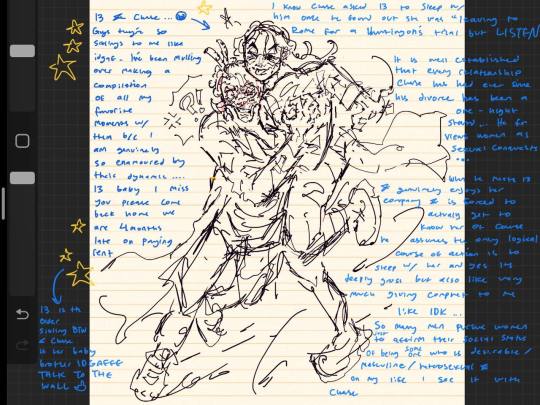 13 & Chase ...
Guys they're so
salings to me like
idgaf. I've been mulling
over making a
compilation
of all my
favorite
moments w/
them b/c I
am genuinely
so enamoured by
their dynamic ....
13 baby I miss
you please come
back home we
are 4 months
late on paying
rent
13 is th
over
sibling BTW
& Chase
is her baby
brother IDGAFFF
TALK TO THE
WALL
I know Chase asked 13 to sleep w/
him once he found out she was leaving to
Rome for a Huntington's trial but LISTEN
It is well established
that every relationship
Chase has had ever since
his divorce has been a
one-night
stand ... He
views women as
sexual conquests
...
When he meets 13
& genuinely enjoys her
company & is forced to
actually get to
know her of course
he assumes the only logical
course of action is to
sleep w/ her and yes its
deeply gross but also like very
much giving comphet to me
like IDK ...
So many men pursue women
just to affirm their social status
of being some one who is desireable /
masculine / heterosexual &
on my life I see it with
Chase